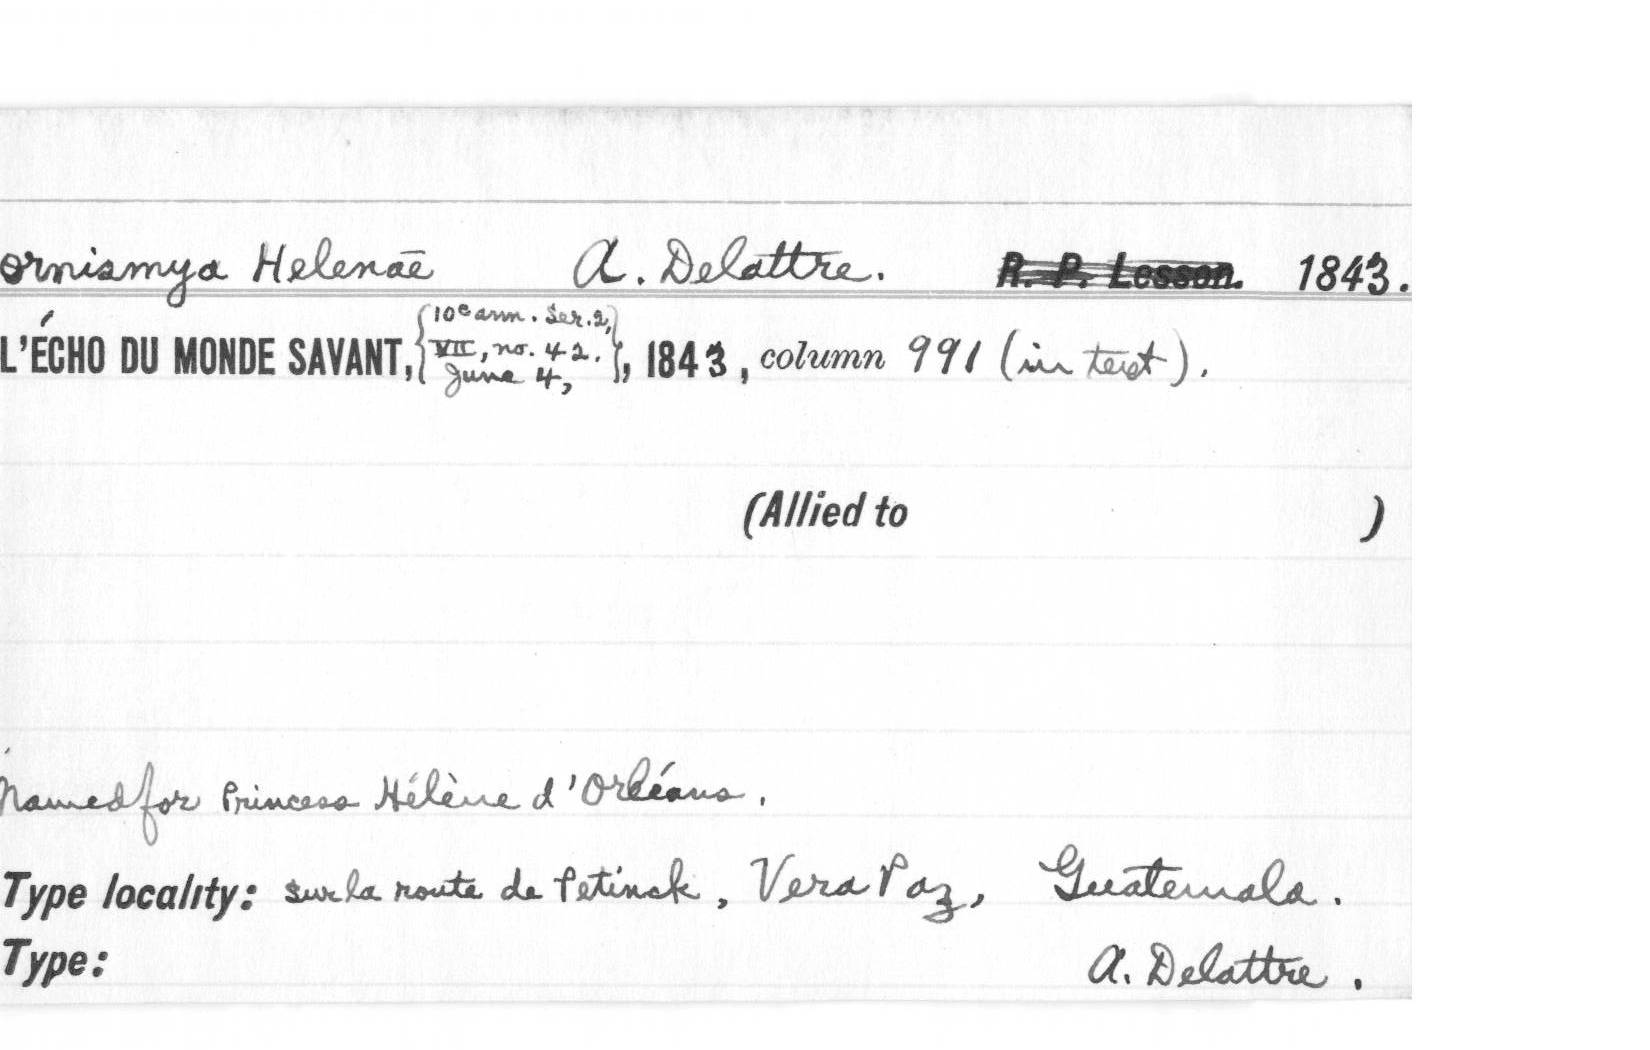 ornismya Helenaē A. Delattre. R. P. Lesson. 1843.
L'ÉCHO DU MONDE SAVANT, {10e ann. Ser. 2, VII, no. 42. June 4,}, 1843, column 991 (in text).
(Allied to )
Named for Princess Hélène d'Orléans.
Type locality: sur la route de Petinck, Vera Paz, Guatemala.
Type: A. Delattre.